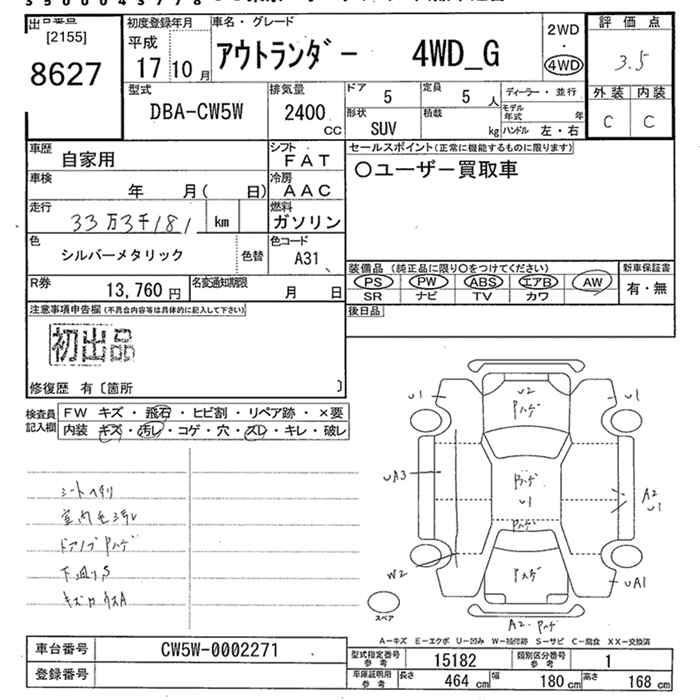 [2155]
8627
初度登録年月
平成
17 10 月
車名・グレード
アウトランダー 4WD_G
2WD
・
4WD
評価点
3.5
外装 内装
C C
型式
DBA-CW5W
排気量
2400
CC
ドア
5
定員
5 人
形状
SUV
積載
kg
ディーラー・並行
モデル年式 年
ハンドル 左・右
車歴
自家用
シフト
FAT
車検
年 月( 日)
冷房
AAC
走行
33万3千181 km
燃料
ガソリン
色
シルバーメタリック
色替
色コード
A31
R券
13,760 円
名変通知期限
月 日
セールスポイント(正常に機能するものに限ります)
○ユーザー買取車
装備品 (純正品に限り○をつけてください)
PS PW ABS エアB AW
SR ナビ TV カワ
新車保証書
有・無
後日品
注意事項申告欄(不具合内容等は具体的に記入して下さい)
初出品
修復歴 有〔箇所 〕
検査員記入欄
FW キズ・飛石・ヒビ割・リペア跡・×要
内装 キズ・汚レ・コゲ・穴・ズレ・キレ・破レ
シートヘタリ
室内色ヨゴレ
ドアノブPハゲ
下廻りS
U1
U2
Pハゲ
U1
UA3
Pハゲ
U1
A2
U1
Pハゲ
W2
Pハゲ
UA1
A2・Pハゲ
スペア
A-キズ E-エクボ U-凹み W-補修跡 S-サビ C-腐食 XX-交換済
車台番号
CW5W-0002271
登録番号
型式指定番号
参考
15182
類別区分番号
参考
1
車庫証明用
参考
長さ
464 cm
幅
180 cm
高さ
168 cm